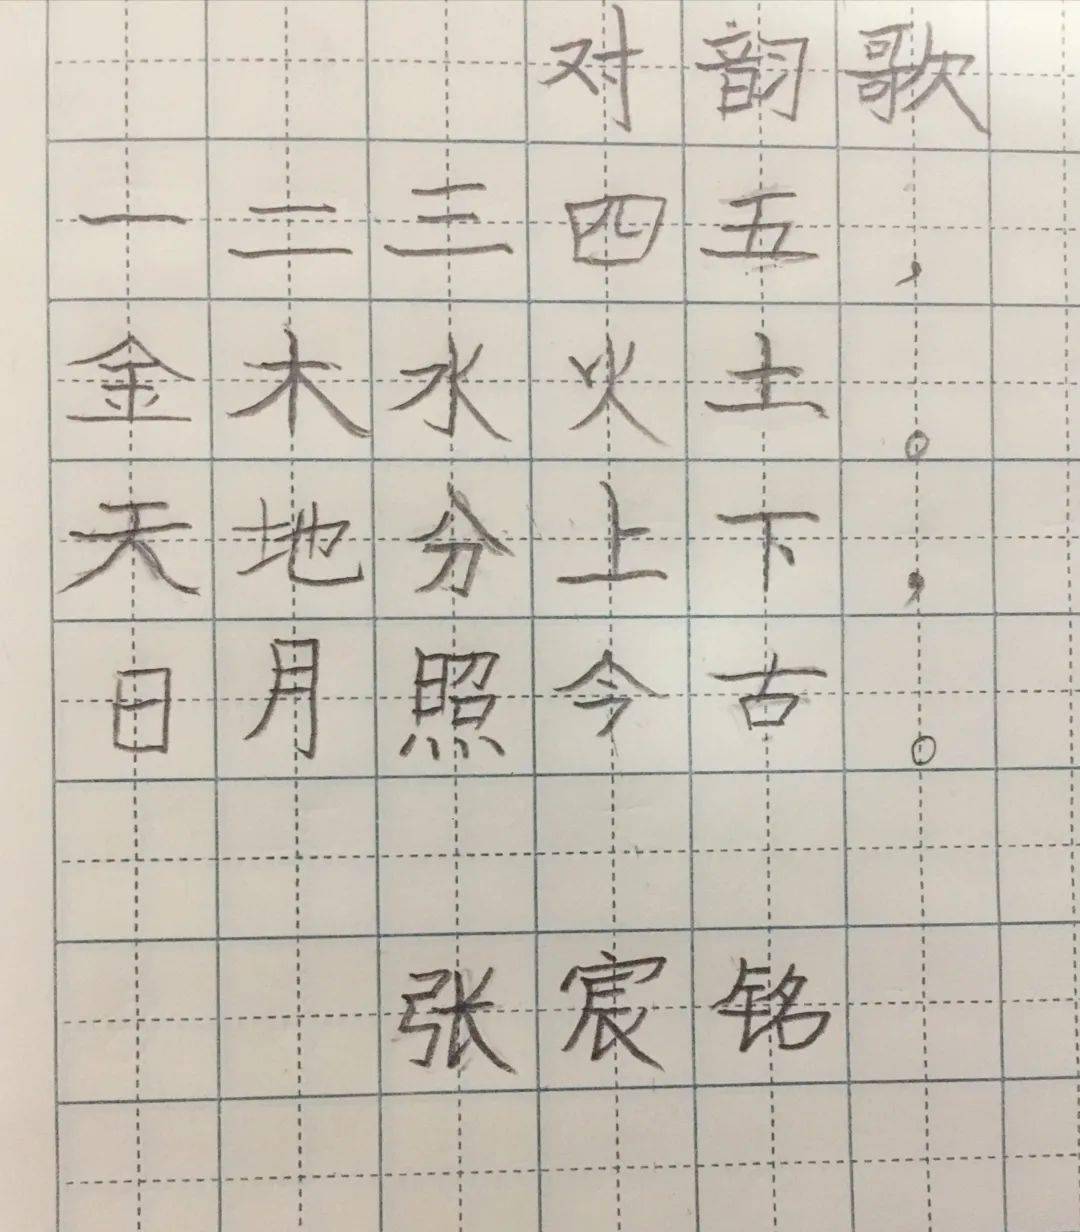 对韵歌
一二三四五，
金木水火土。
天地分上下，
日月照今古。
张宸铭